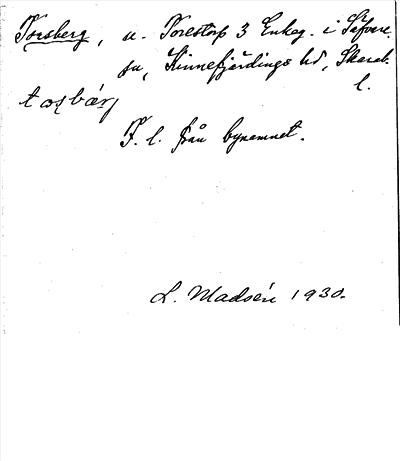 Torsberg, u. Torestorp 3 Enkeg. i Säfvare
sn, Kinnefjärdings hd, Skarab.
l.
tosbærj
F. l. från bynamnet.
L. Madsén 1930.